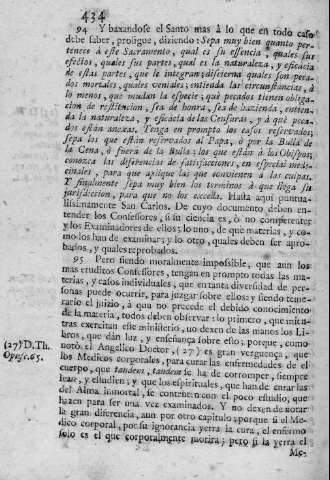 434
94 Y baxandose el Santo mas à lo que en todo caso
debe saber, prosigue, diziendo: Sepa muy bien quanto per-
tenece à este Sacramento, qual es su essencia, quales sus
efectos, quales sus partes, qual es la naturaleza, y eficacia
de estas partes, que le integran; discierna quales son peca-
dos mortales, quales veniales; entienda las circunstancias, à
lo menos, que mudan la especie: què pecados tienen obliga-
cion de restitucion, sea de honra, sea de hazienda, entien-
da la naturaleza, y eficacia de las Censuras, y à què peca-
dos estàn anexas. Tenga en prompto los casos reservados;
sepa los que estàn reservados al Papa, ò por la Bulla de
la Cena, ò fuera de la Bulla: los que estàn à los Obispos;
conozca las diferencias de satisfactiones, en especial medi-
cinales, para que aplique las que convienen à las culpas.
Y finalmente sepa muy bien los terminos à que llega su
jurisdiccion, para que no los exceda. Hasta aqui puntua-
lissimamente San Carlos. De cuyo documento deben en-
tender los Confessores, si su ciencia es, ò no competente;
y los Examinadores de ellos: lo uno, de què materias, y co-
mo los han de examinar; y lo otro, quales deben ser apro-
bados, y quales reprobados.
95 Pero siendo moralmente impossible, que aun los
mas eruditos Confessores, tengan en prompto todas las ma-
terias, y casos individuales, que en tanta diversidad de per-
sonas puede ocurrir, para juzgar sobre ellos; y siendo teme-
rario el juizio, à que no precede el debido conocimiento
de la materia, todos deben observar: lo primero, que mien-
tras exercitan este ministerio, no dexen de las manos los Li-
bros, que dàn luz, y enseñanza sobre esto; porque, como
notò el Angelico Doctor, (27) es gran verguença, que
los Medicos corporales, para curar las enfermedades de el
cuerpo, que tandem, tandem se ha de corromper, siempre
lean, y estudien; y que los espirituales, que han de curar las
del Alma inmortal, se contenten con el poco estudio, que
hazen para ser una vez examinados. Y no dexen de notar
la gran diferencia, aun por otro capitulo; porque si el Me-
dico corporal, por su ignorancia yerra la cura, el enfermo
solo es el que corporalmente morirà; pero si la yerra el
Me-
(27) D. Th.
Opusc. 65.